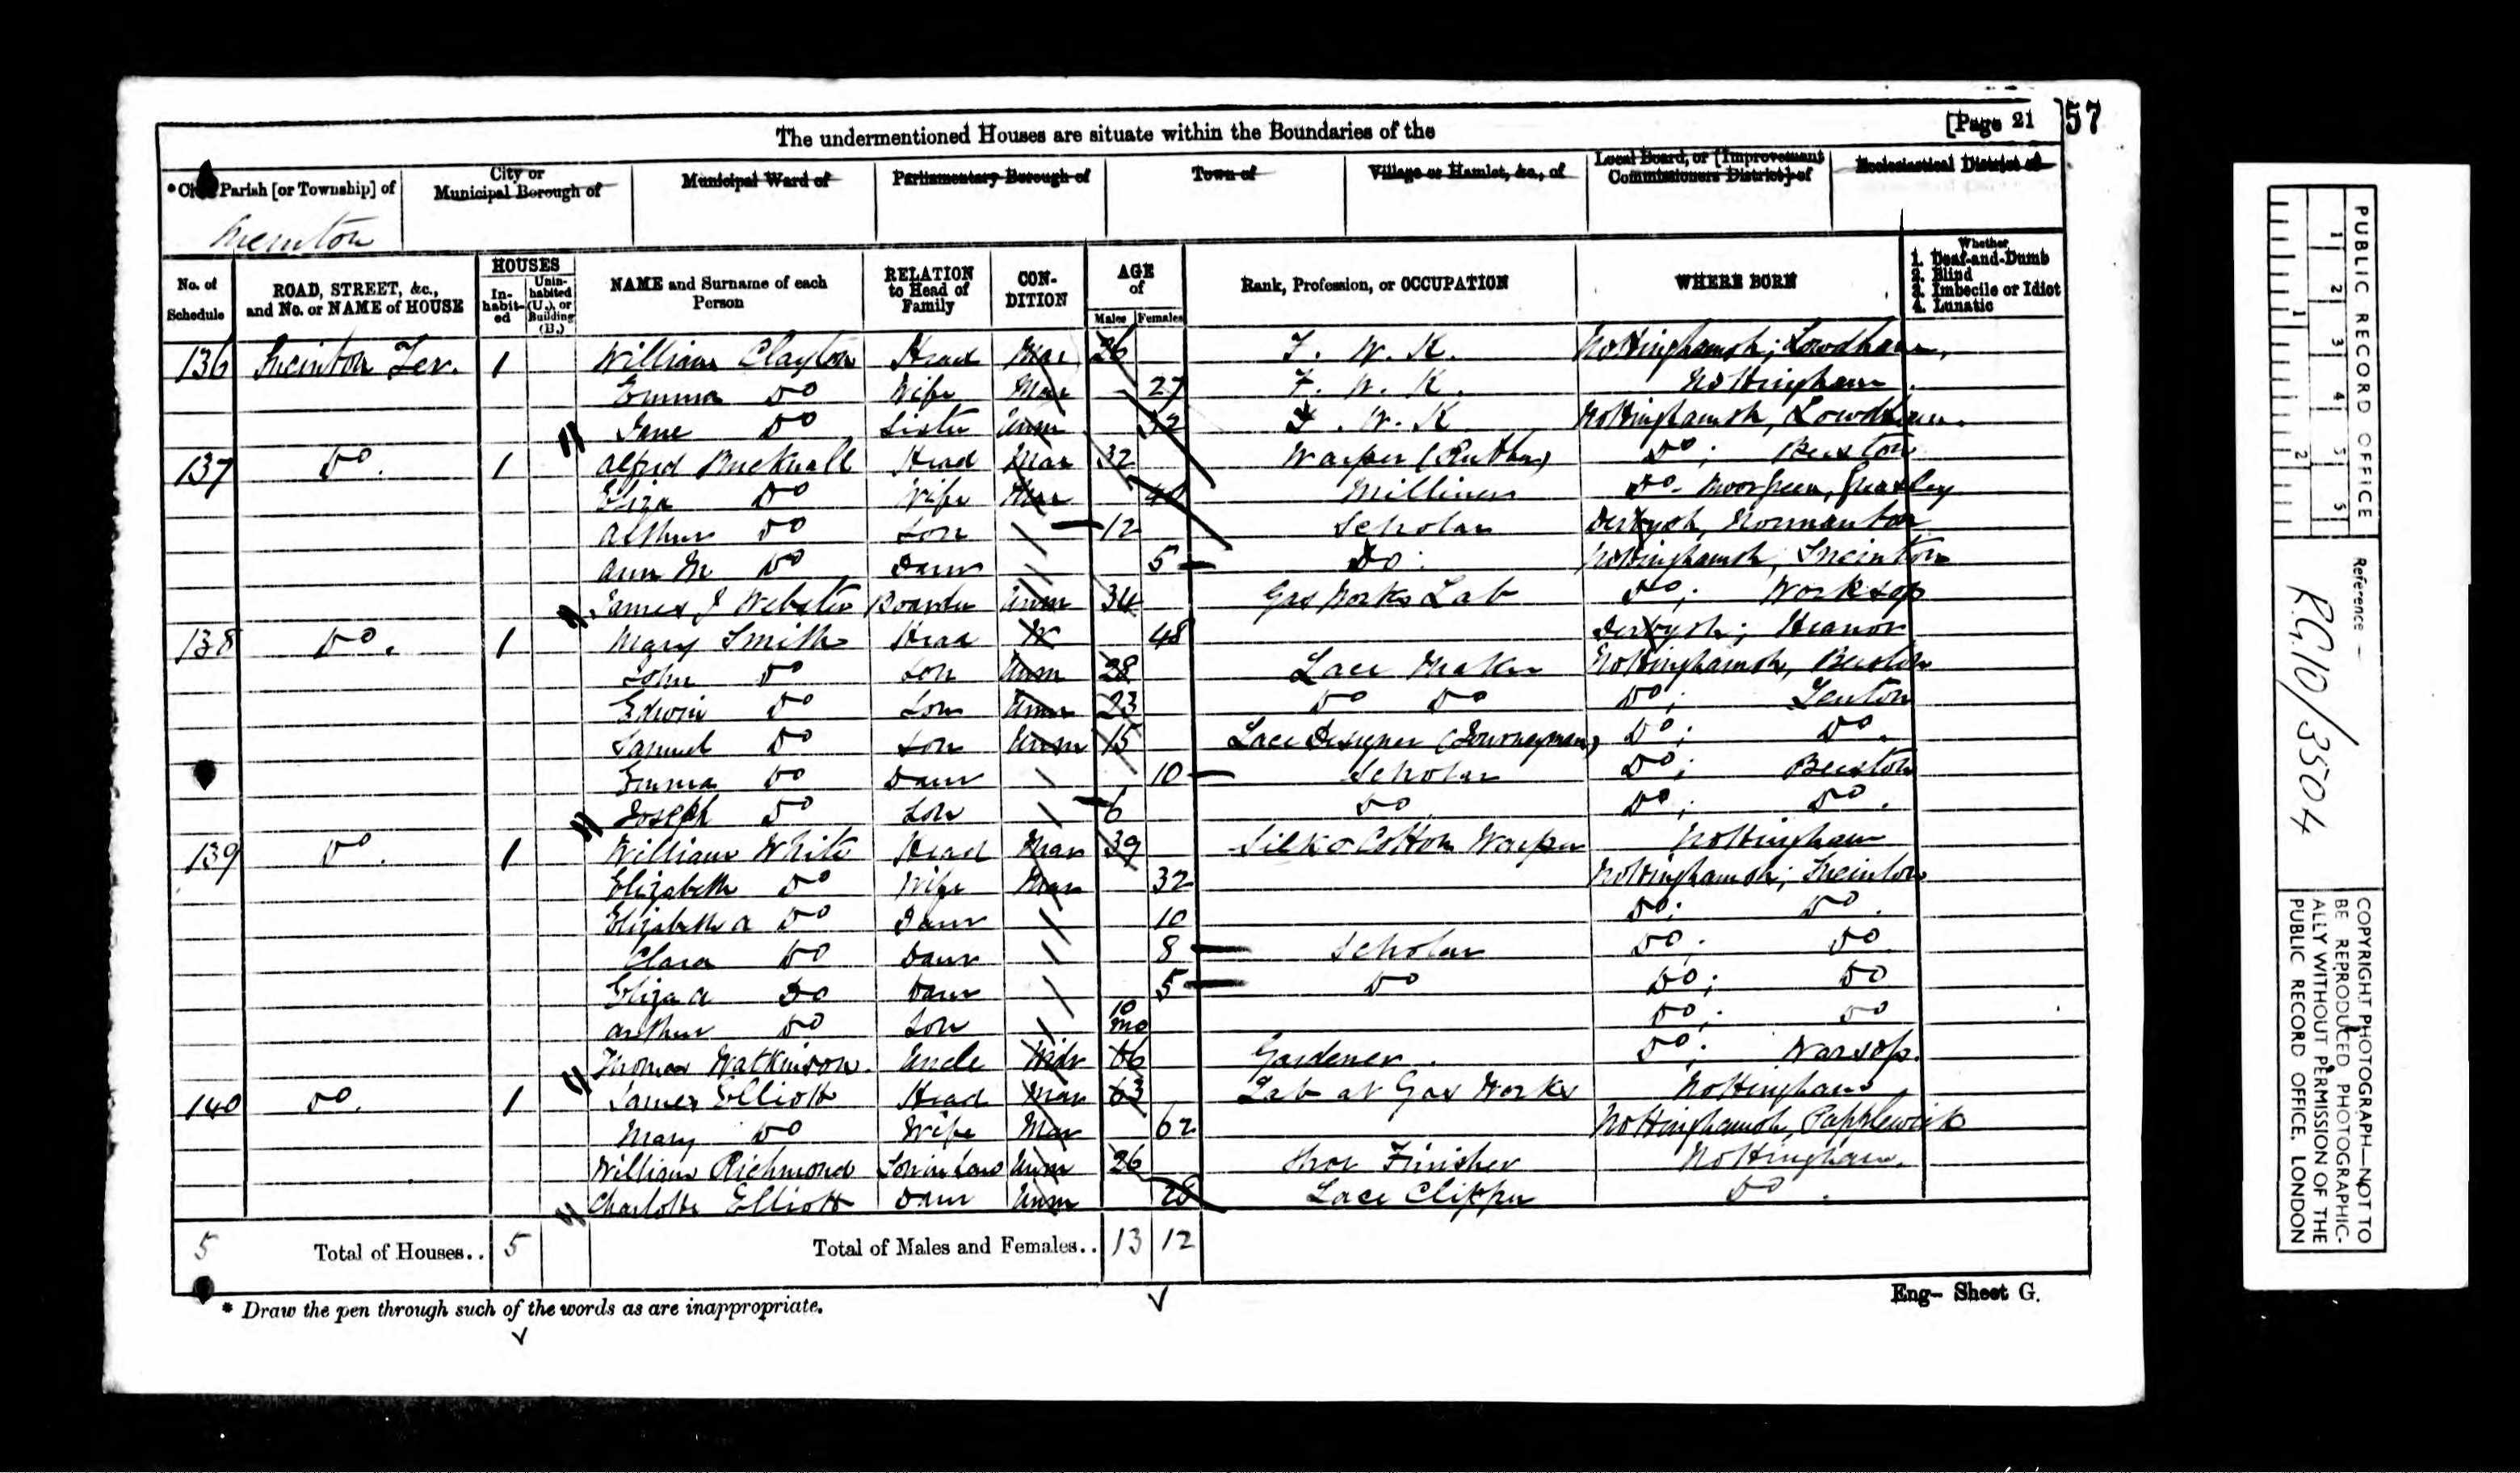 The undermentioned Houses are situate within the Boundaries of the
[Page 21
57
Parish [or Township] of
City or Municipal Borough of
Municipal Ward of
Parliamentary Borough of
Town of
Village or Hamlet, &c., of
Local Board, or [Improvement Commissioners District] of
Ecclesiastical District of
Sneinton
No. of Schedule
ROAD, STREET, &c., and No. or NAME of HOUSE
HOUSES
In-habit-ed
Unin-habited (U.), or Building (B.)
NAME and Surname of each Person
RELATION to Head of Family
CON-DITION
AGE of
Males
Females
Rank, Profession, or OCCUPATION
WHERE BORN
Whether
1. Deaf-and-Dumb
2. Blind
3. Imbecile or Idiot
4. Lunatic
136 Sneinton Ter. 1 William Clayton Head Mar 26 F. W. K. Nottinghamsh; Lowdham.
Emma Do Wife Mar 27 F. W. K. Nottingham.
Jane Do Sister Unm 32 F. W. K Nottinghamsh, Lowdham.
137 Do. 1 Alfred Bucknall Head Mar 32 Warper Do; Beeston
Eliza Do Wife Mar 40 Milliner Do. Moorgreen, Greasley
Arthur Do Son 12 Scholar Derbysh, Normanton
Ann M Do Daur 5 Do. Nottinghamsh, Sneinton
James J Webster Boarder Unm 34 Gas Works Lab Do; Worksop
138 Do. 1 Mary Smith Head W 48 Derbysh; Heanor
John Do Son Unm 28 Lace Maker Nottinghamsh, Beeston
Edwin Do Son Unm 23 Do Do Do; Lenton
Samuel Do Son Unm 15 Lace Designer (Journeyman) Do; Do.
Emma Do Daur 10 Scholar Do; Beeston
Joseph Do Son 6 Do Do; Do.
139 Do. 1 William White Head Mar 39 Silk & Cotton Warper Nottingham
Elizabeth Do Wife Mar 32 Nottinghamsh; Sneinton
Elizabeth A Do Daur 10 Do; Do.
Clara Do Daur 8 Scholar Do; Do.
Eliza A Do Daur 5 Do Do; Do
Arthur Do Son 10 mo Do; Do
Thomas Watkinson Uncle Widr 66 Gardener. Do; Warsop.
140 Do. 1 James Elliott Head Mar 63 Lab at Gas Works Nottingham
Mary Do Wife Mar 62 Nottinghamsh, Papplewick
William Richmond Son in Law Unm 26 Finisher Nottingham.
Charlotte Elliott Daur Unm 28 Lace Clipper Do.
5 Total of Houses.. 5 Total of Males and Females.. 13 12
* Draw the pen through such of the words as are inappropriate.
Eng- Sheet G.
PUBLIC RECORD OFFICE
1 2 3 4 5
1 2
Reference -
RG10/3504
COPYRIGHT PHOTOGRAPH—NOT TO
BE REPRODUCED PHOTOGRAPHIC-
ALLY WITHOUT PERMISSION OF THE
PUBLIC RECORD OFFICE, LONDON